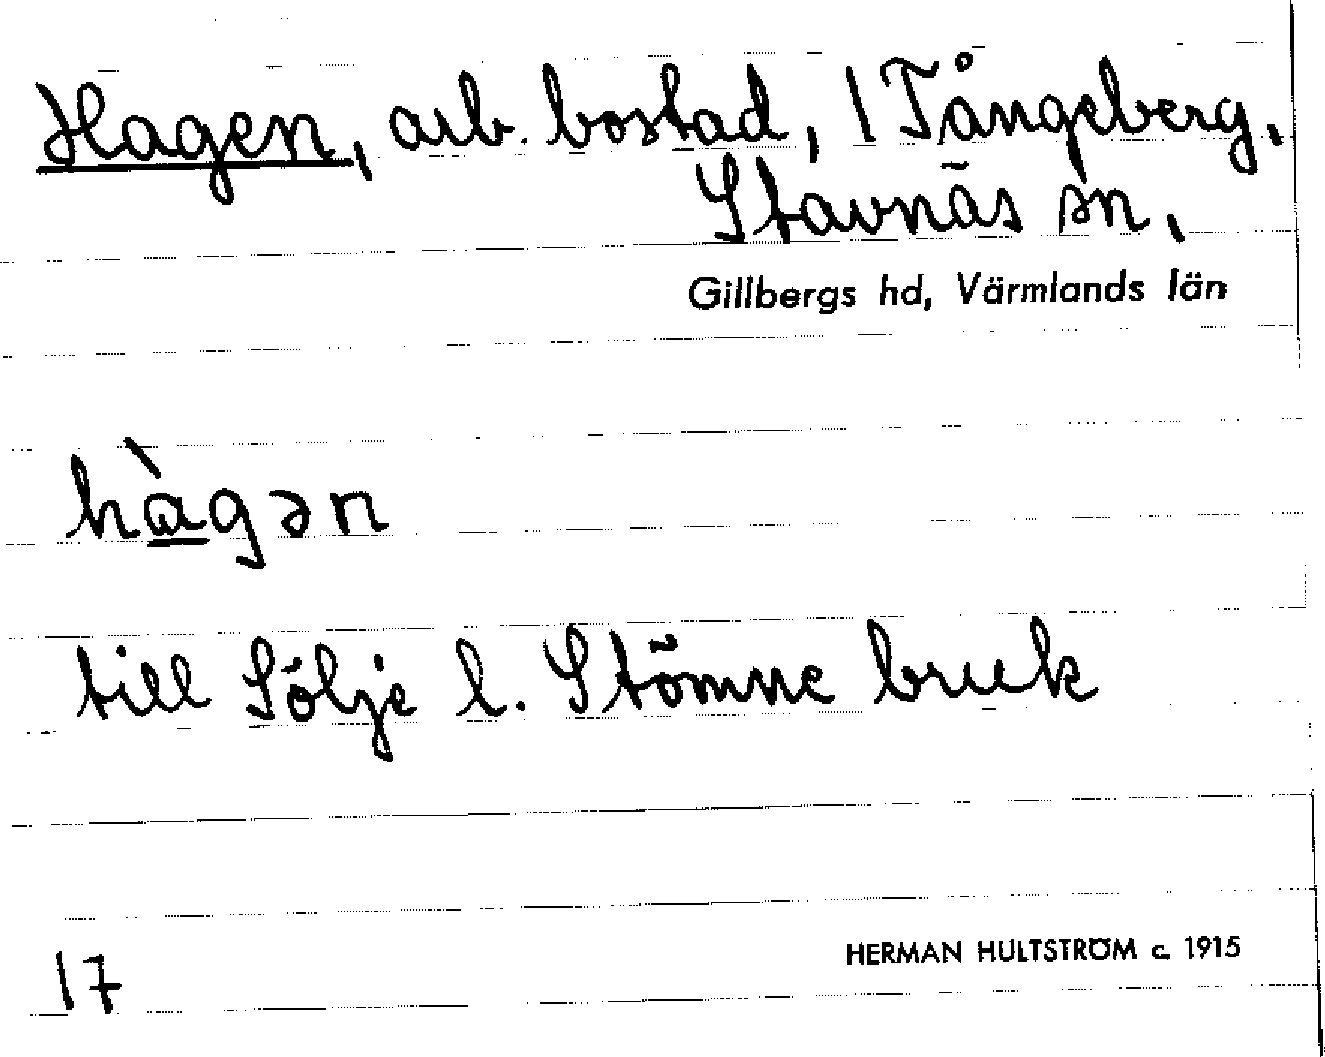 Hagen, arb. bostad, 1 Tångeberg,
Stavnäs sn,
Gillbergs hd, Värmlands län
hàgən
till Sölje l. Stömne bruk
17
HERMAN HULTSTRÖM c. 1915